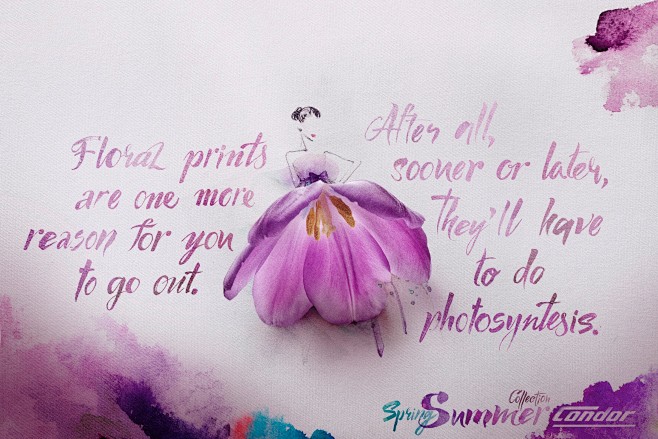 Floral prints
are one more
reason for you
to go out.
After all,
sooner or later,
they'll have
to do
photosyntesis.
Collection
Spring Summer
Condor